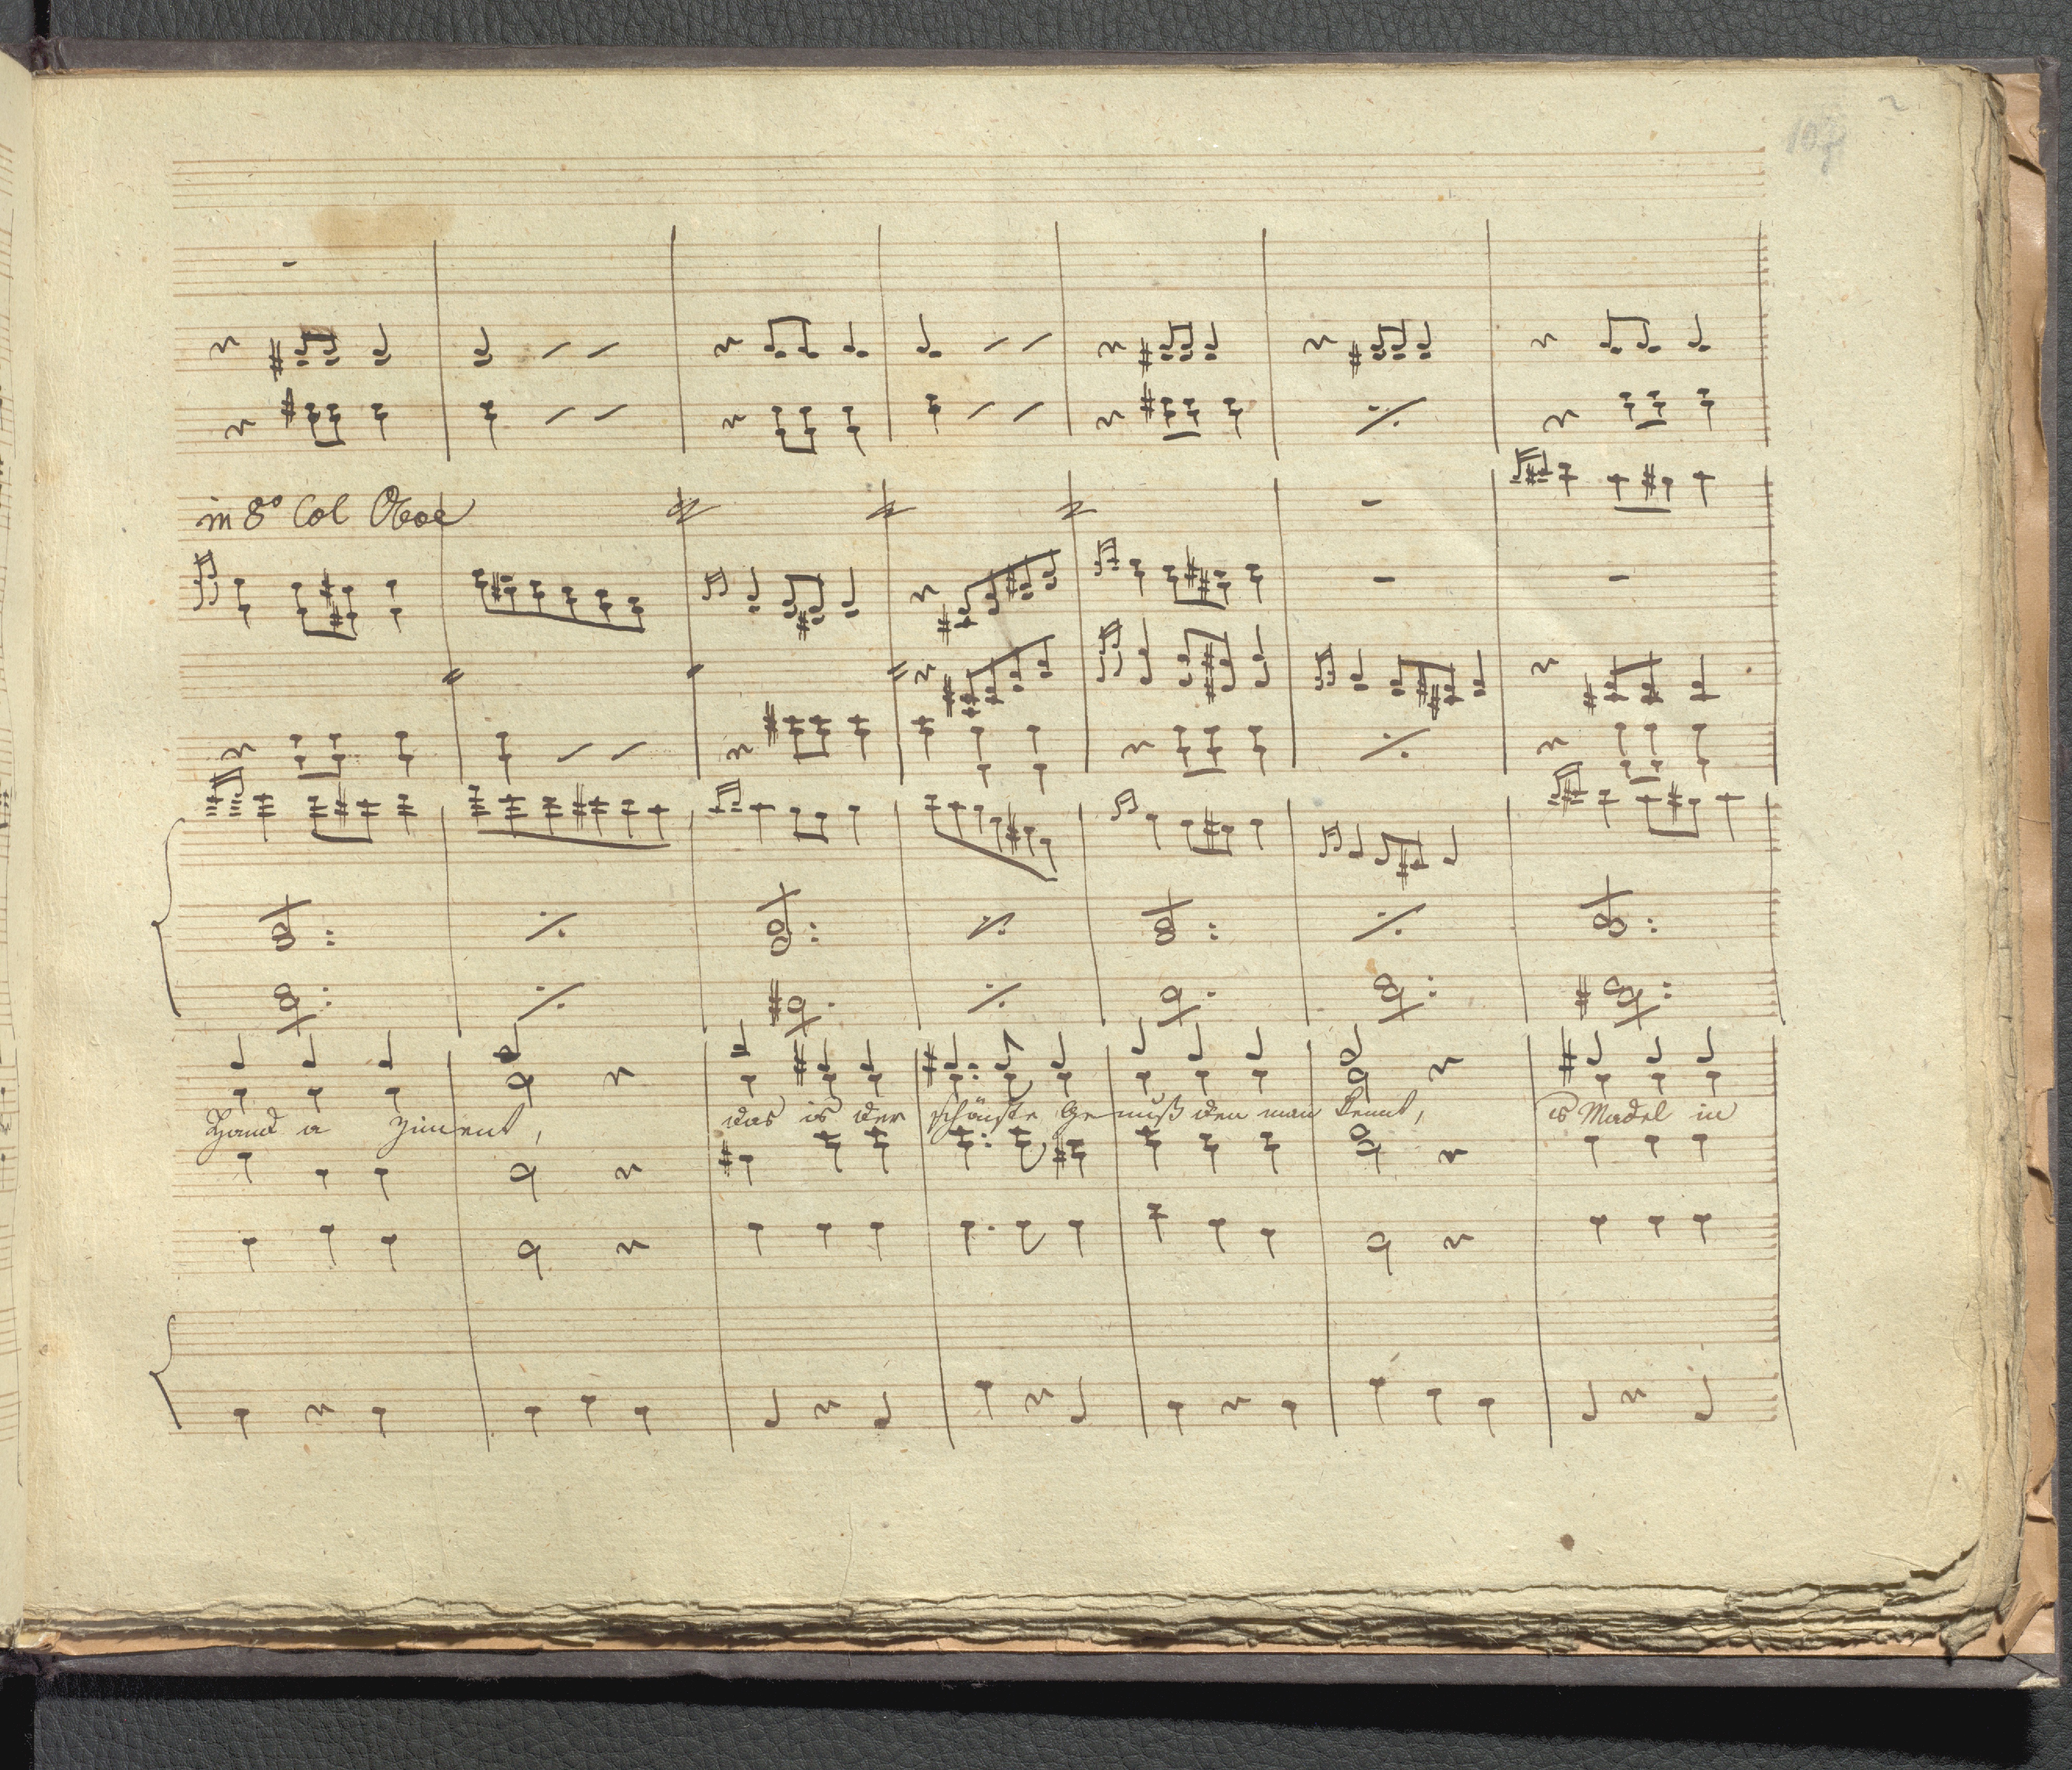 2
107
in 8º Col Oboe
Hand a Ziment, das is der schönste Genuß den man kennt, is Madel in